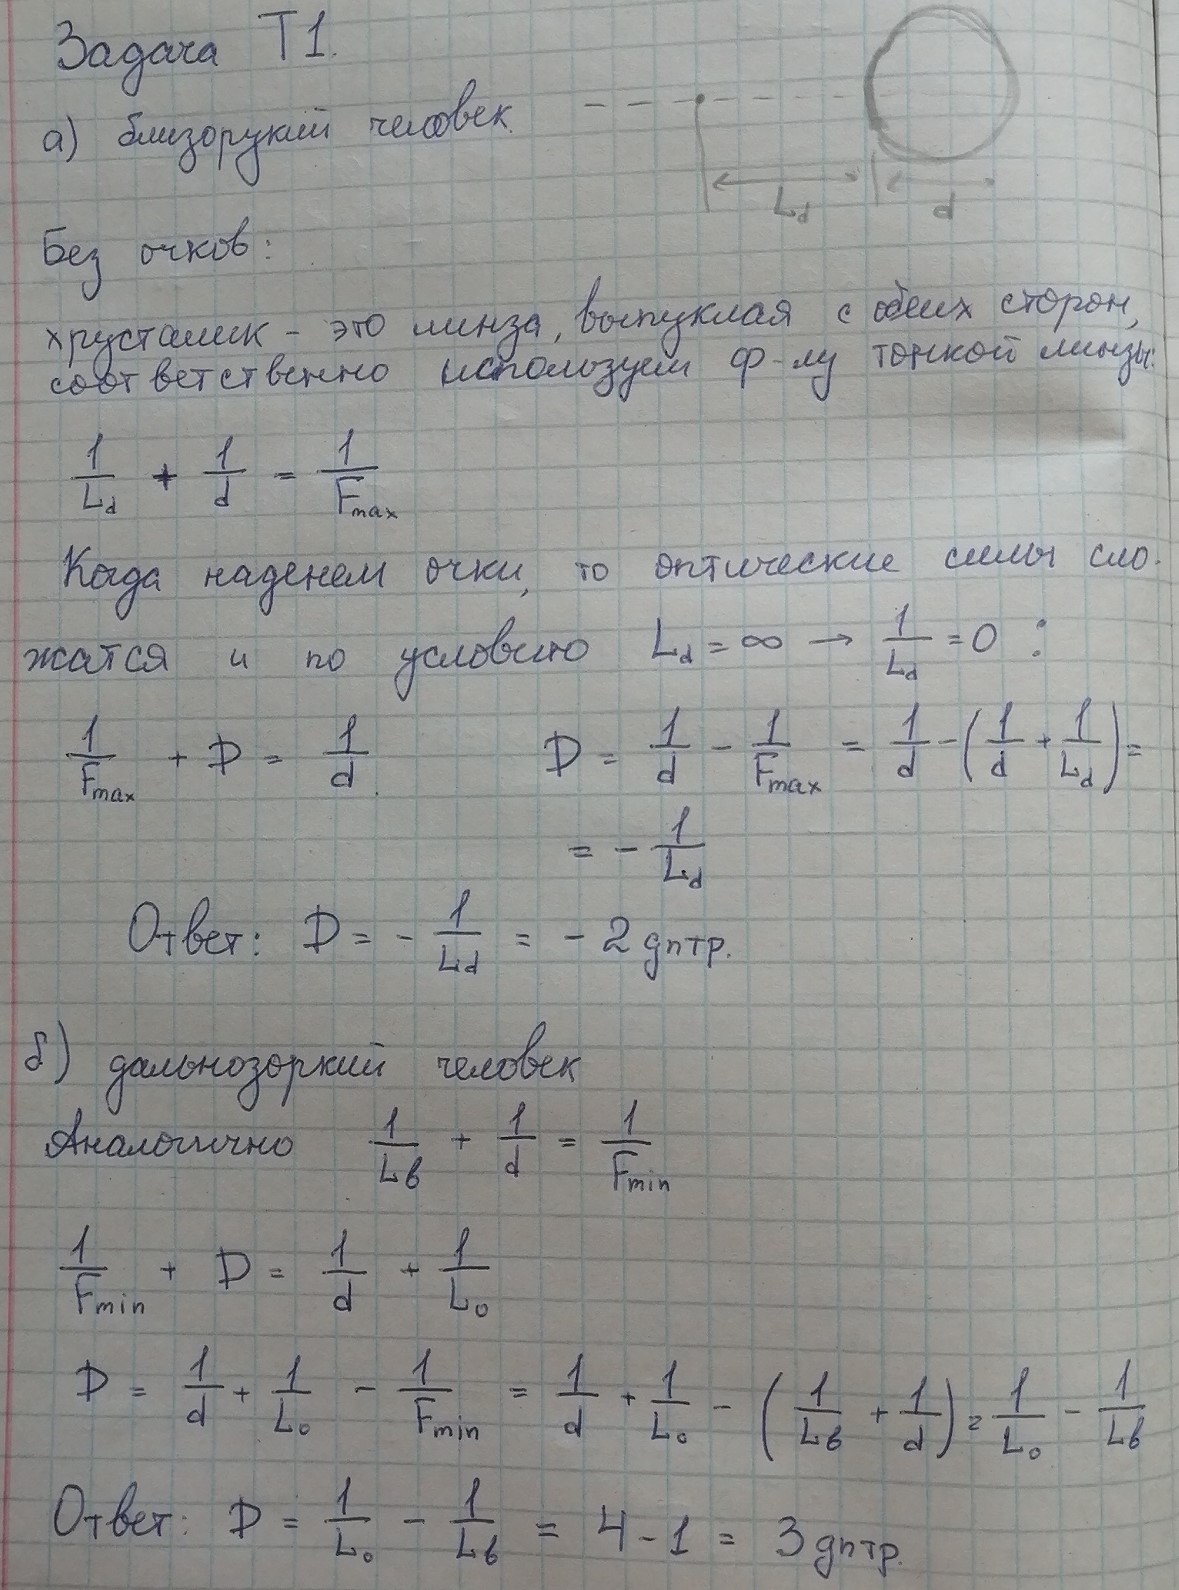 Задача Т1.
а) близорукий человек.
L_d
d
Без очков:
хрусталик - это линза, выпуклая с обеих сторон,
соответственно используем ф-лу тонкой линзы:
1/L_d + 1/d = 1/F_max
Когда наденем очки, то оптические силы сло-
жатся и по условию L_d = ∞ → 1/L_d = 0 :
1/F_max + D = 1/d. D = 1/d - 1/F_max = 1/d - (1/d + 1/L_d) =
= - 1/L_d
Ответ: D = - 1/L_d = - 2 дптр.
б) дальнозоркий человек
Аналогично 1/L_б + 1/d = 1/F_min
1/F_min + D = 1/d + 1/L_0
D = 1/d + 1/L_0 - 1/F_min = 1/d + 1/L_0 - (1/L_б + 1/d) = 1/L_0 - 1/L_б
Ответ: D = 1/L_0 - 1/L_б = 4 - 1 = 3 дптр.